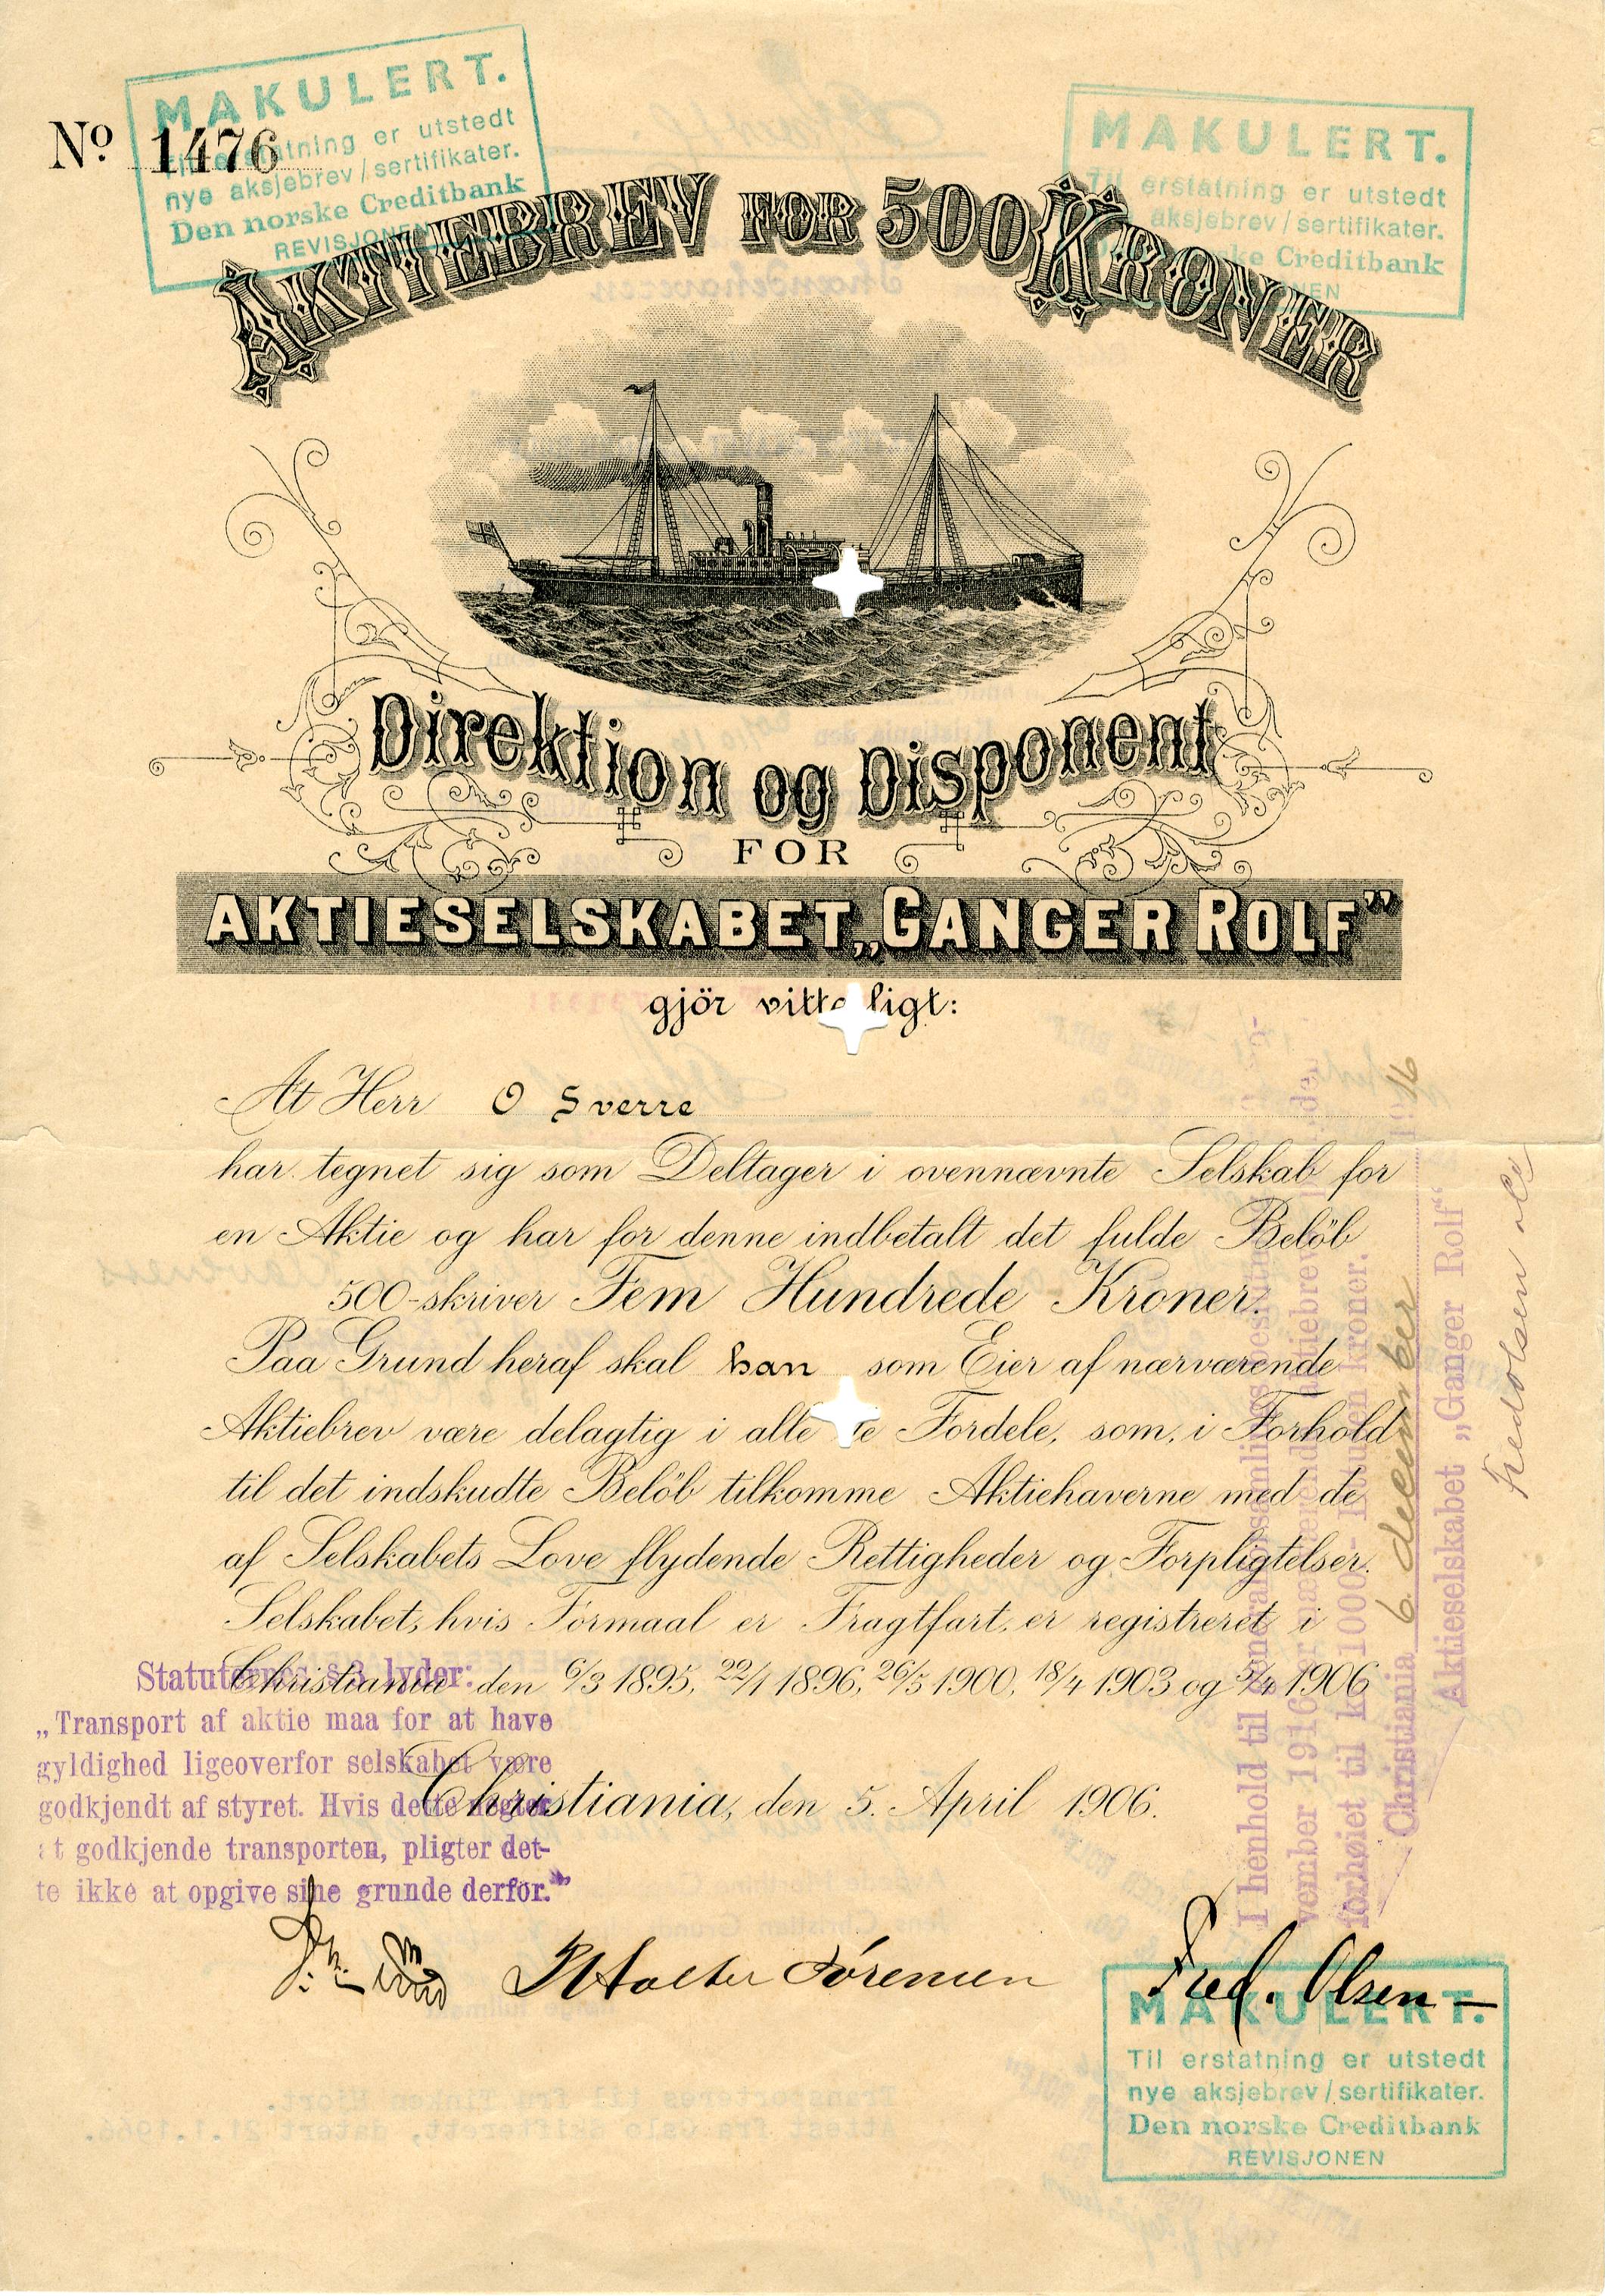 MAKULERT.
Til erstatning er utstedt
nye aksjebrev / sertifikater.
Den norske Creditbank
REVISJONEN
MAKULERT.
Til erstatning er utstedt
aksjebrev / sertifikater.
Creditbank
No 1476
AKTIEBREV FOR 500 KRONER
Direktion og Disponent
FOR
AKTIESELSKABET „GANGER ROLF"
gjör vitterligt:
At Herr O Sverre
har tegnet sig som Deltager i ovennævnte Selskab for
en Aktie og har for denne indbetalt det fulde Belöb
500-skriver Fem Hundrede Kroner.
Paa Grund heraf skal han som Eier af nærværende
Aktiebrev være delagtig i alle de Fordele, som, i Forhold
til det indskudte Belöb tilkomme Aktiehaverne med de
af Selskabets Love flydende Rettigheder og Forpligtelser.
Selskabet, hvis Formaal er Fragtfart, er registreret i
Christiania den 6/3 1895, 22/1 1896, 26/5 1900, 18/4 1903 og 5/4 1906
Christiania, den 5. April 1906.
Statuternes § 3 lyder:
„Transport af aktie maa for at have
gyldighed ligeoverfor selskabet være
godkjendt af styret. Hvis dette negter
at godkjende transporten, pligter det-
te ikke at opgive sine grunde derfor."
I henhold til generalforsamlings
vember 1916 er nærværende aktiebrevs
forhøiet til kr. 1000 kroner.
Christiania 6. december 1916
Aktieselskabet „Ganger Rolf"
Fred Olsen
Fred. Olsen
MAKULERT.
Til erstatning er utstedt
nye aksjebrev / sertifikater.
Den norske Creditbank
REVISJONEN